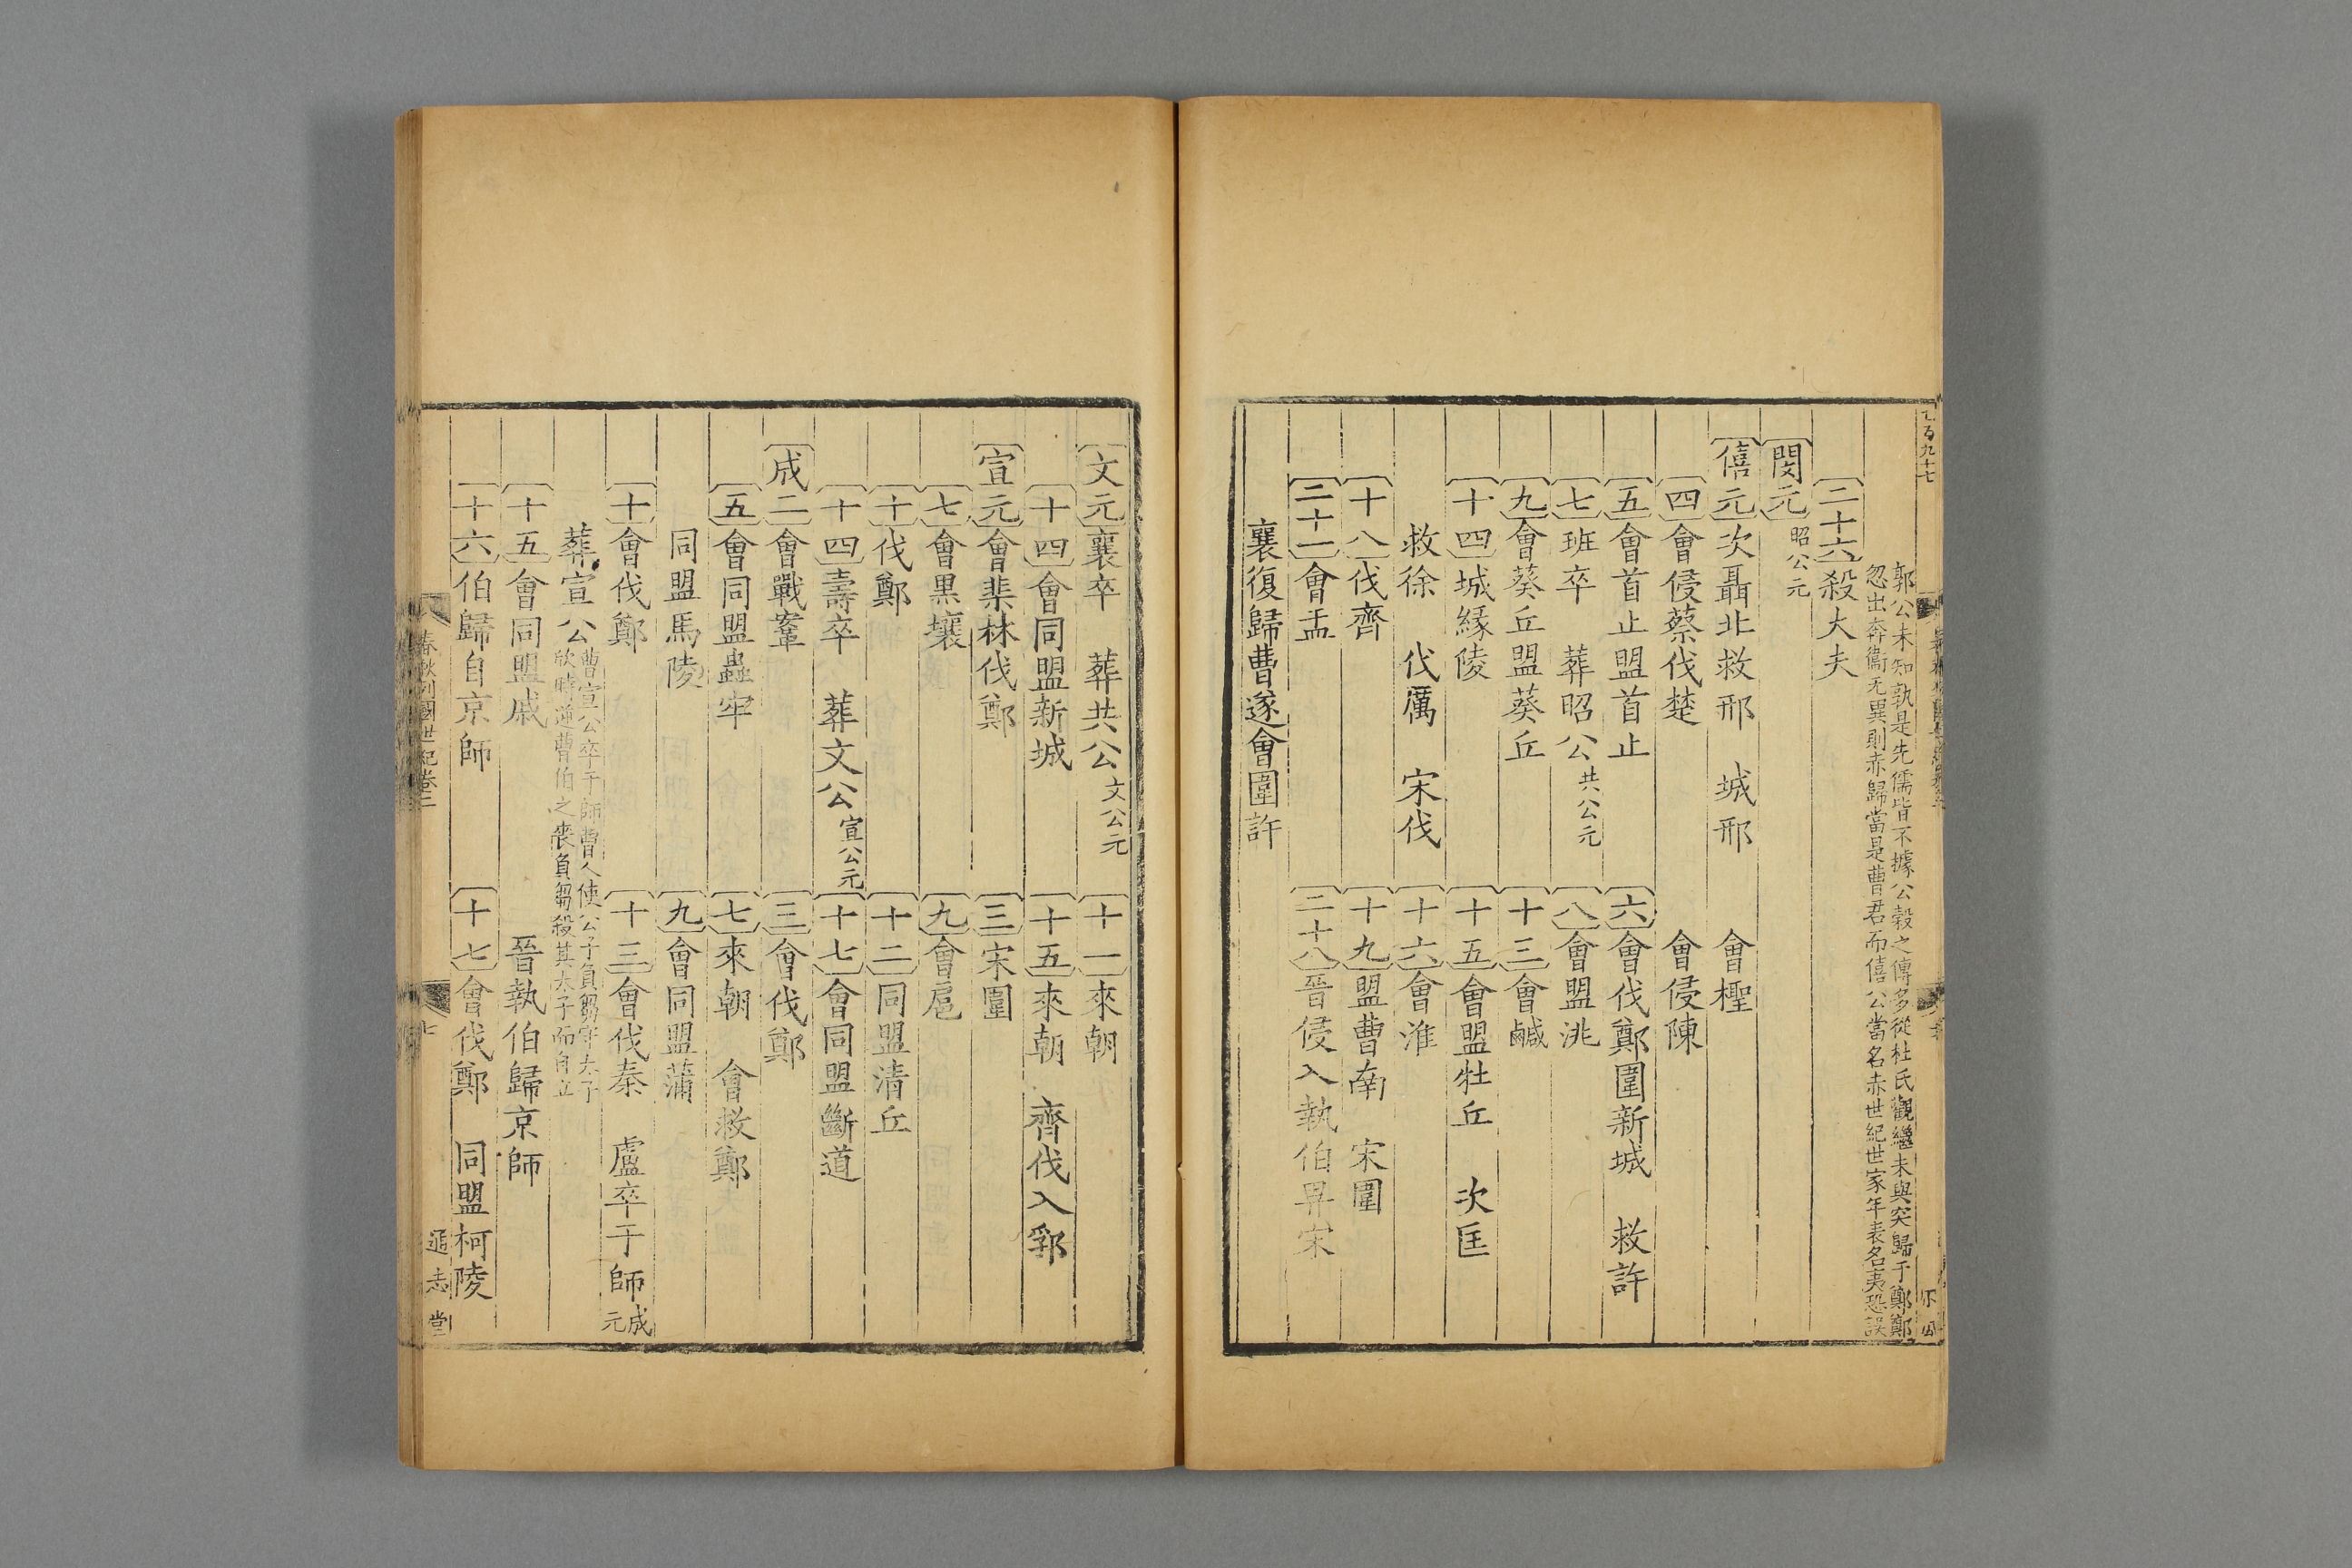 郭公未知孰是先儒皆不據公穀之傳多從杜氏觀繼未與突歸于鄭鄭
忽出奔衞无異則赤歸當是曹君而僖公當名赤世紀世家年表名夷恐誤
二十六殺大夫
閔元昭公元
僖元次聶北救邢 城邢 會檉
四會侵蔡伐楚 會侵陳
五會首止盟首止 六會伐鄭圍新城 救許
七班卒 葬昭公共公元 八會盟洮
九會葵丘盟葵丘 十三會鹹
十四城緣陵 十五會盟牡丘 次匡
救徐 伐厲 宋伐 十六會淮
十八伐齊 十九盟曹南 宋圍
二十一會盂 二十八晉侵入執伯畀宋
襄復歸曹遂會圍許
文元襄卒 葬共公文公元 十一來朝
十四會同盟新城 十五來朝 齊伐入郛
宣元會棐林伐鄭 三宋圍
七會黑壤 九會扈
十伐鄭 十二同盟清丘
十四壽卒 葬文公宣公元 十七會同盟斷道
成二會戰鞌 三會伐鄭
五會同盟蟲牢 七來朝 會救鄭
同盟馬陵 九會同盟蒲
十會伐鄭 十三會伐秦 盧卒于師成元
葬宣公曹宣公卒于師曹人使公子負芻守太子
欣時逆曹伯之喪負芻殺其太子而自立
十五會同盟戚 晉執伯歸京師
十六伯歸自京師 十七會伐鄭 同盟柯陵
春秋列國世紀卷二 七 通志堂